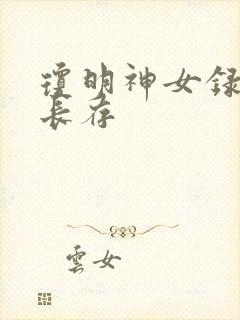 瓊明神女録
長存
雲女